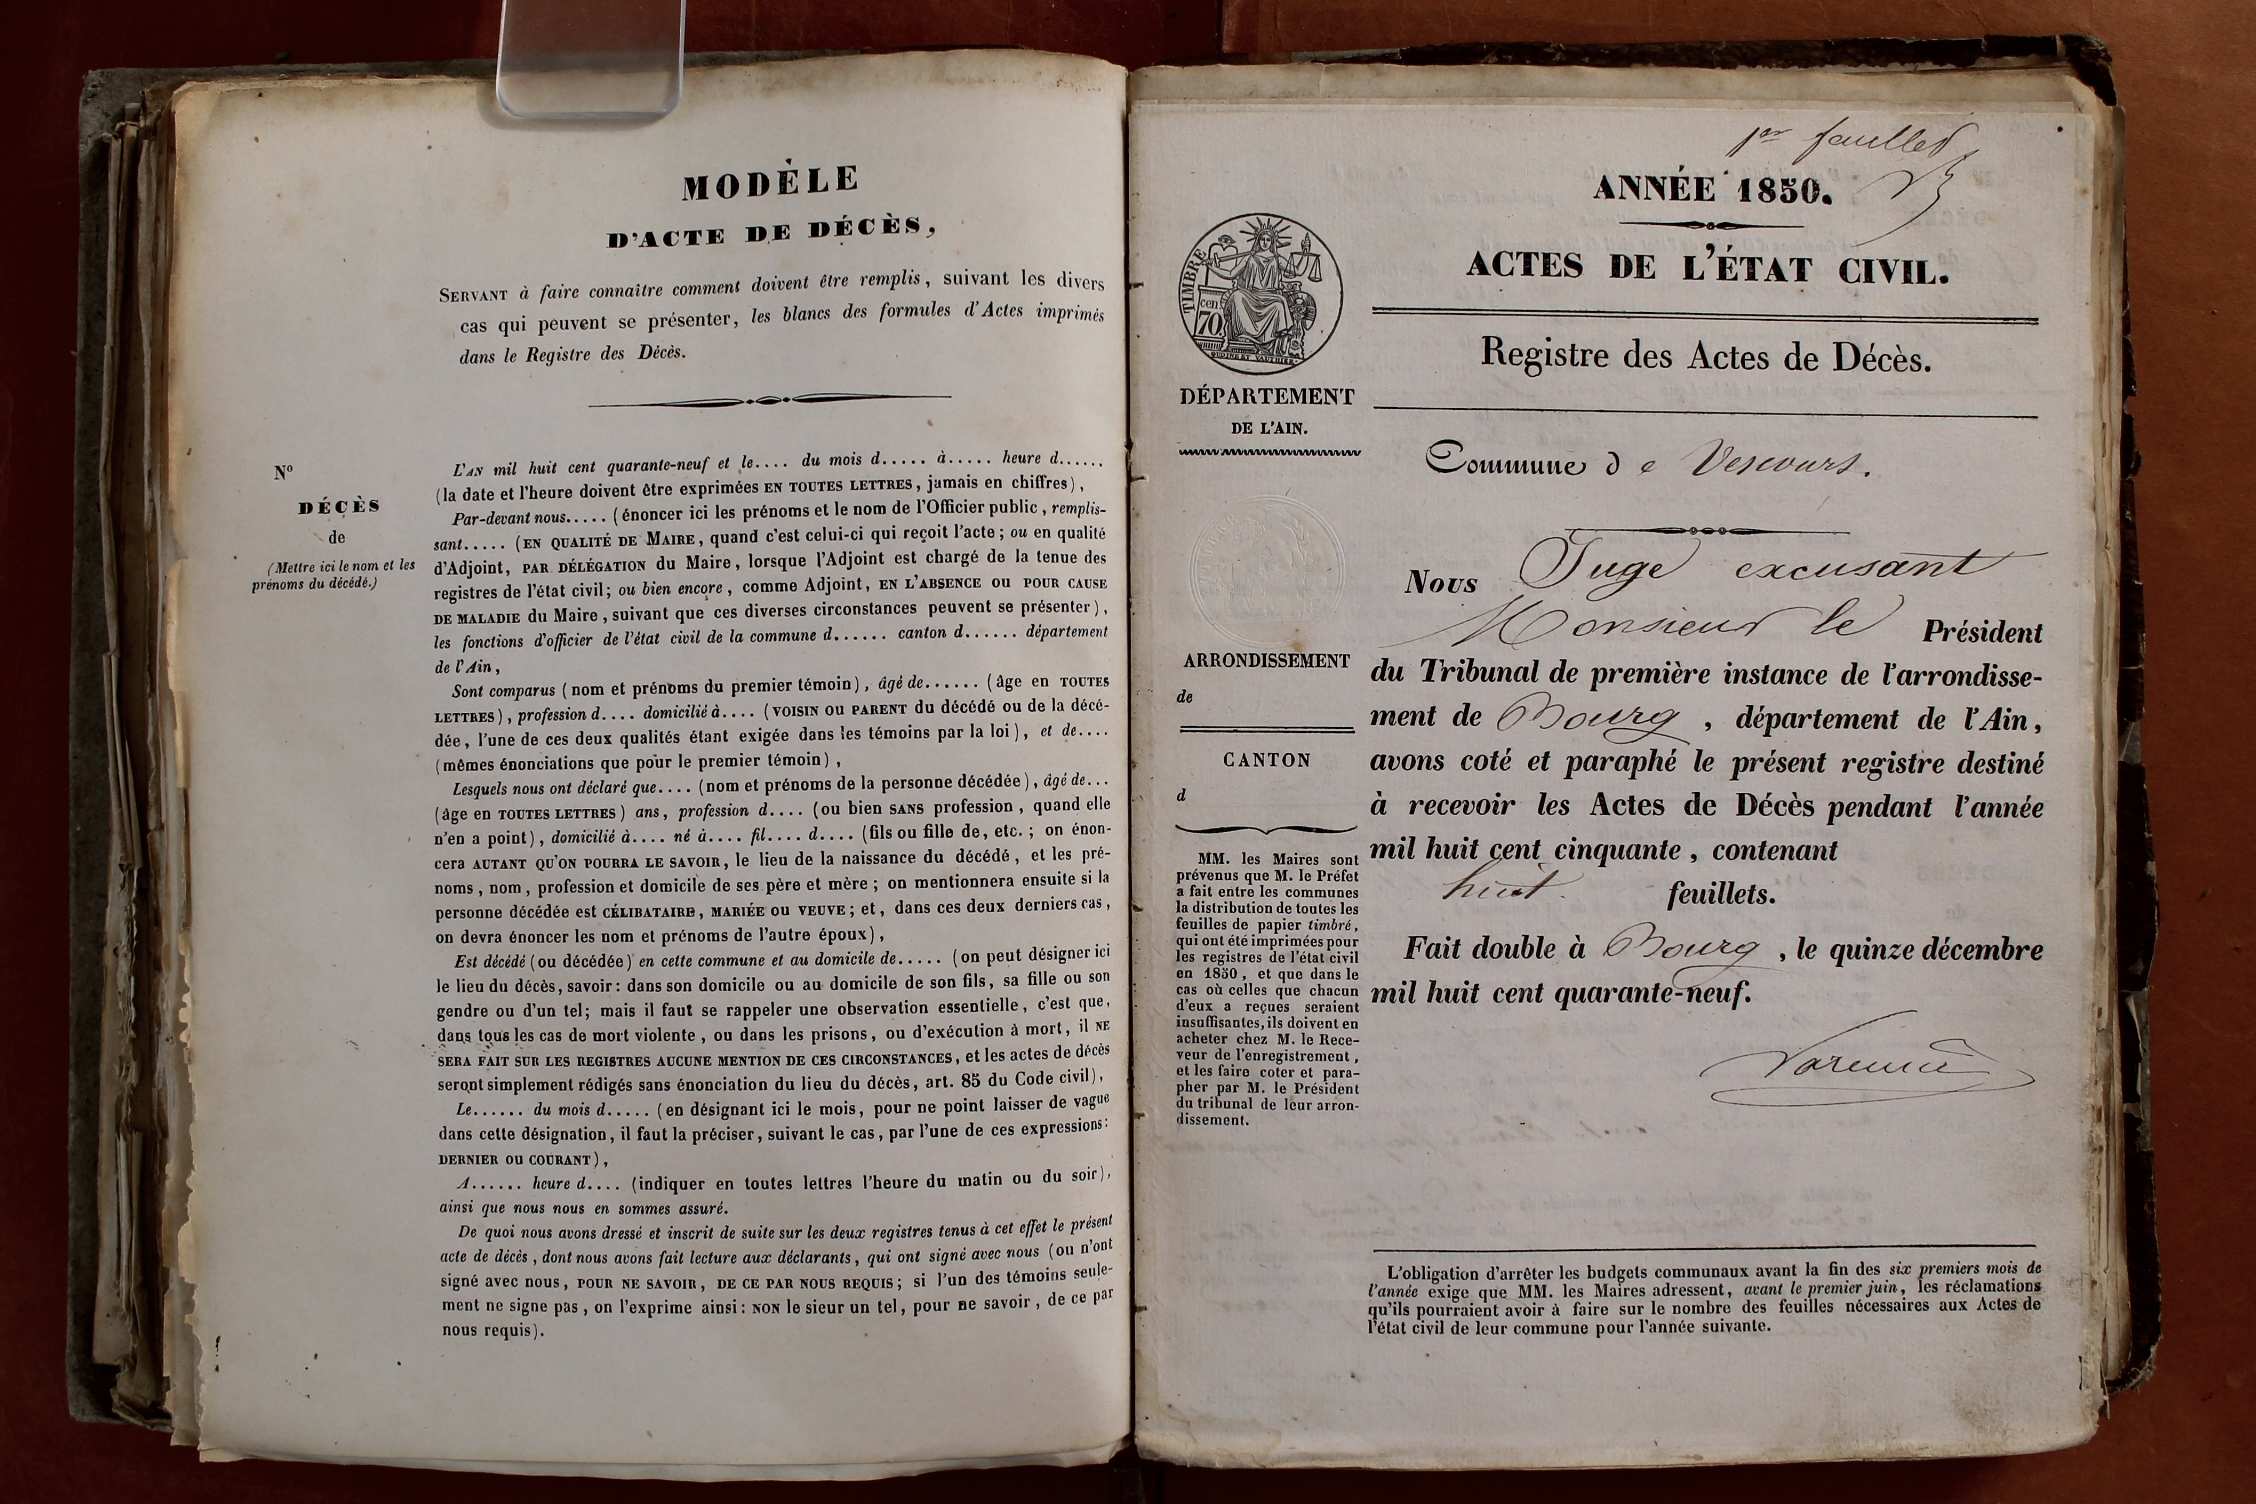 MODÈLE
D'ACTE DE DÉCÈS,
SERVANT à faire connaître comment doivent être remplis, suivant les divers
cas qui peuvent se présenter, les blancs des formules d'Actes imprimés
dans le Registre des Décès.
N°
DÉCÈS
de
(Mettre ici le nom et les
prénoms du décédé.)
L'AN mil huit cent quarante-neuf et le.... du mois d..... à..... heure d......
(la date et l'heure doivent être exprimées EN TOUTES LETTRES, jamais en chiffres),
Par-devant nous..... (énoncer ici les prénoms et le nom de l'Officier public, remplis-
sant..... (EN QUALITÉ DE MAIRE, quand c'est celui-ci qui reçoit l'acte; ou en qualité
d'Adjoint, PAR DÉLÉGATION du Maire, lorsque l'Adjoint est chargé de la tenue des
registres de l'état civil; ou bien encore, comme Adjoint, EN L'ABSENCE OU POUR CAUSE
DE MALADIE du Maire, suivant que ces diverses circonstances peuvent se présenter),
les fonctions d'officier de l'état civil de la commune d...... canton d...... département
de l'Ain,
Sont comparus (nom et prénoms du premier témoin), âgé de...... (âge en TOUTES
LETTRES), profession d.... domicilié à.... (VOISIN OU PARENT du décédé ou de la décé-
dée, l'une de ces deux qualités étant exigée dans les témoins par la loi), et de....
(mêmes énonciations que pour le premier témoin),
Lesquels nous ont déclaré que.... (nom et prénoms de la personne décédée), âgé de...
(âge en TOUTES LETTRES) ans, profession d.... (ou bien SANS profession, quand elle
n'en a point), domicilié à.... né à.... fil.... d.... (fils ou fille de, etc.; on énon-
cera AUTANT QU'ON POURRA LE SAVOIR, le lieu de la naissance du décédé, et les pré-
noms, nom, profession et domicile de ses père et mère; on mentionnera ensuite si la
personne décédée est CÉLIBATAIRE, MARIÉE OU VEUVE; et, dans ces deux derniers cas,
on devra énoncer les nom et prénoms de l'autre époux),
Est décédé (ou décédée) en cette commune et au domicile de..... (on peut désigner ici
le lieu du décès, savoir: dans son domicile ou au domicile de son fils, sa fille ou son
gendre ou d'un tel; mais il faut se rappeler une observation essentielle, c'est que,
dans tous les cas de mort violente, ou dans les prisons, ou d'exécution à mort, il NE
SERA FAIT SUR LES REGISTRES AUCUNE MENTION DE CES CIRCONSTANCES, et les actes de décès
seront simplement rédigés sans énonciation du lieu du décès, art. 85 du Code civil),
Le...... du mois d..... (en désignant ici le mois, pour ne point laisser de vague
dans cette désignation, il faut la préciser, suivant le cas, par l'une de ces expressions:
DERNIER OU COURANT),
A...... heure d.... (indiquer en toutes lettres l'heure du matin ou du soir),
ainsi que nous nous en sommes assuré.
De quoi nous avons dressé et inscrit de suite sur les deux registres tenus à cet effet le présent
acte de décès, dont nous avons fait lecture aux déclarants, qui ont signé avec nous (ou n'ont
signé avec nous, POUR NE SAVOIR, DE CE PAR NOUS REQUIS; si l'un des témoins seule-
ment ne signe pas, on l'exprime ainsi: NON le sieur un tel, pour ne savoir, de ce par
nous requis).
1er feuillet
ANNÉE 1850.
ACTES DE L'ÉTAT CIVIL.
Registre des Actes de Décès.
TIMBRE
cen
70.
DÉPARTEMENT
DE L'AIN.
ARRONDISSEMENT
de
CANTON
d
MM. les Maires sont
prévenus que M. le Préfet
a fait entre les communes
la distribution de toutes les
feuilles de papier timbré,
qui ont été imprimées pour
les registres de l'état civil
en 1850, et que dans le
cas où celles que chacun
d'eux a reçues seraient
insuffisantes, ils doivent en
acheter chez M. le Rece-
veur de l'enregistrement,
et les faire coter et para-
pher par M. le Président
du tribunal de leur arron-
dissement.
Commune de Vescours.
Nous Juge excusant
Monsieur le Président
du Tribunal de première instance de l'arrondisse-
ment de Bourg, département de l'Ain,
avons coté et paraphé le présent registre destiné
à recevoir les Actes de Décès pendant l'année
mil huit cent cinquante, contenant
huit feuillets.
Fait double à Bourg, le quinze décembre
mil huit cent quarante-neuf.
L'obligation d'arrêter les budgets communaux avant la fin des six premiers mois de
l'année exige que MM. les Maires adressent, avant le premier juin, les réclamations
qu'ils pourraient avoir à faire sur le nombre des feuilles nécessaires aux Actes de
l'état civil de leur commune pour l'année suivante.